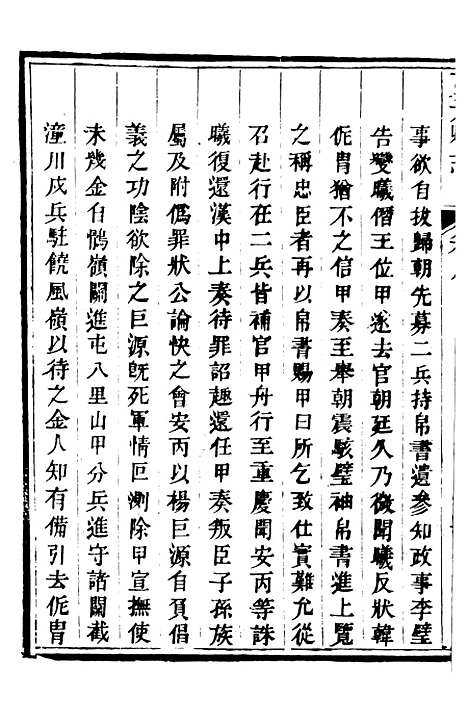 事欲自拔歸朝先募二兵持帛書遺參知政事李璧
告變曦僭王位甲遂去官朝廷久乃微聞曦反狀韓
侂胄猶不之信甲奏至舉朝震駭璧袖帛書進上覽
之稱忠臣者再以帛書賜甲曰所乞致仕實難允從
召赴行在二兵皆補官甲舟行至重慶聞安丙等誅
曦復還漢中上奏待罪詔趣還任甲奏叛臣子孫族
屬及附僞罪狀公論快之會安丙以楊巨源自負倡
義之功陰欲除之巨源旣死軍情叵測除甲宣撫使
未幾金自鶻嶺關進屯八里山甲分兵進守諸關截
潼川戍兵駐饒風嶺以待之金人知有備引去侂胄